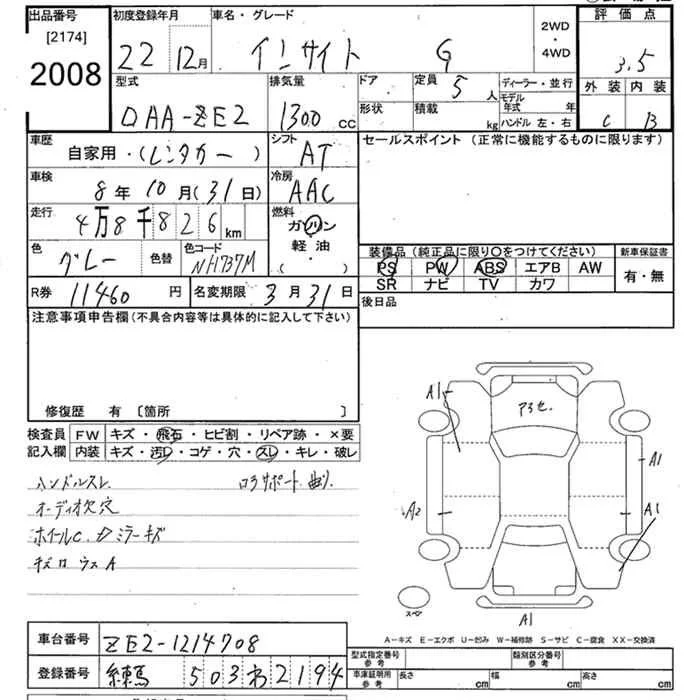 出品番号 初度登録年月 車名・グレード 2WD・4WD 評価点
[2174]
2008 22 12月 インサイト G 3.5
型式 排気量 ドア 定員 ディーラー・並行 外装 内装
DAA-ZE2 1300cc 5人 モデル年式 年
形状 積載 kg ハンドル 左・右 C B
車歴 シフト セールスポイント (正常に機能するものに限ります)
自家用・(レンタカー) AT
車検 冷房
8年10月(31日) AAC
走行 燃料
4万8千826km ガソリン
軽油
( ・ )
色 グレー 色替 色コード NH737M
装備品 (純正品に限り〇をつけてください) 新車保証書
PS PW ABS エアB AW 有・無
SR ナビ TV カワ
R券 11460円 名変期限 3月31日 後日品
注意事項申告欄 (不具合内容等は具体的に記入して下さい)
修復歴 有 〔箇所 〕
検査員 FW キズ・飛石・ヒビ割・リペア跡・×要
記入欄 内装 キズ・汚レ・コゲ・穴・スレ・キレ・破レ
ハンドルスレ
オーディオ欠穴
A1
A1
A2
A1
A1
スペア
A-キズ E-エクボ U-凹み W-補修跡 S-サビ C-腐食 XX-交換済
車台番号 ZE2-1214708
登録番号 練馬 503 わ 2194
型式指定番号 参考 類別区分番号 参考
車庫証明用 参考 長さ cm 幅 cm 高さ cm